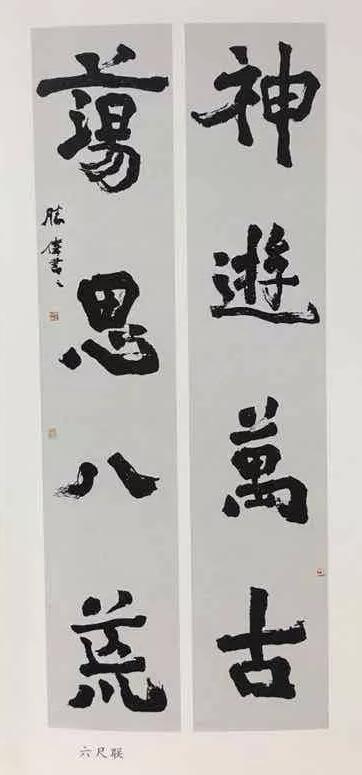 神遊萬古
蕩思八荒
勝偉書
六尺联